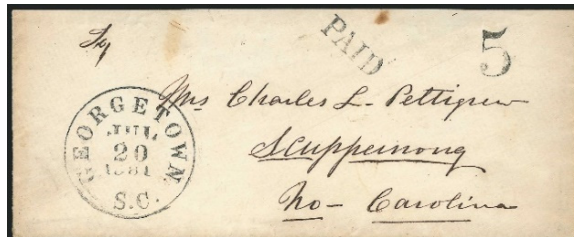 PAID
5
GEORGETOWN
JUL
20
1861
S.C.
Mrs Charles L. Pettigrew
Scuppernong
No- Carolina